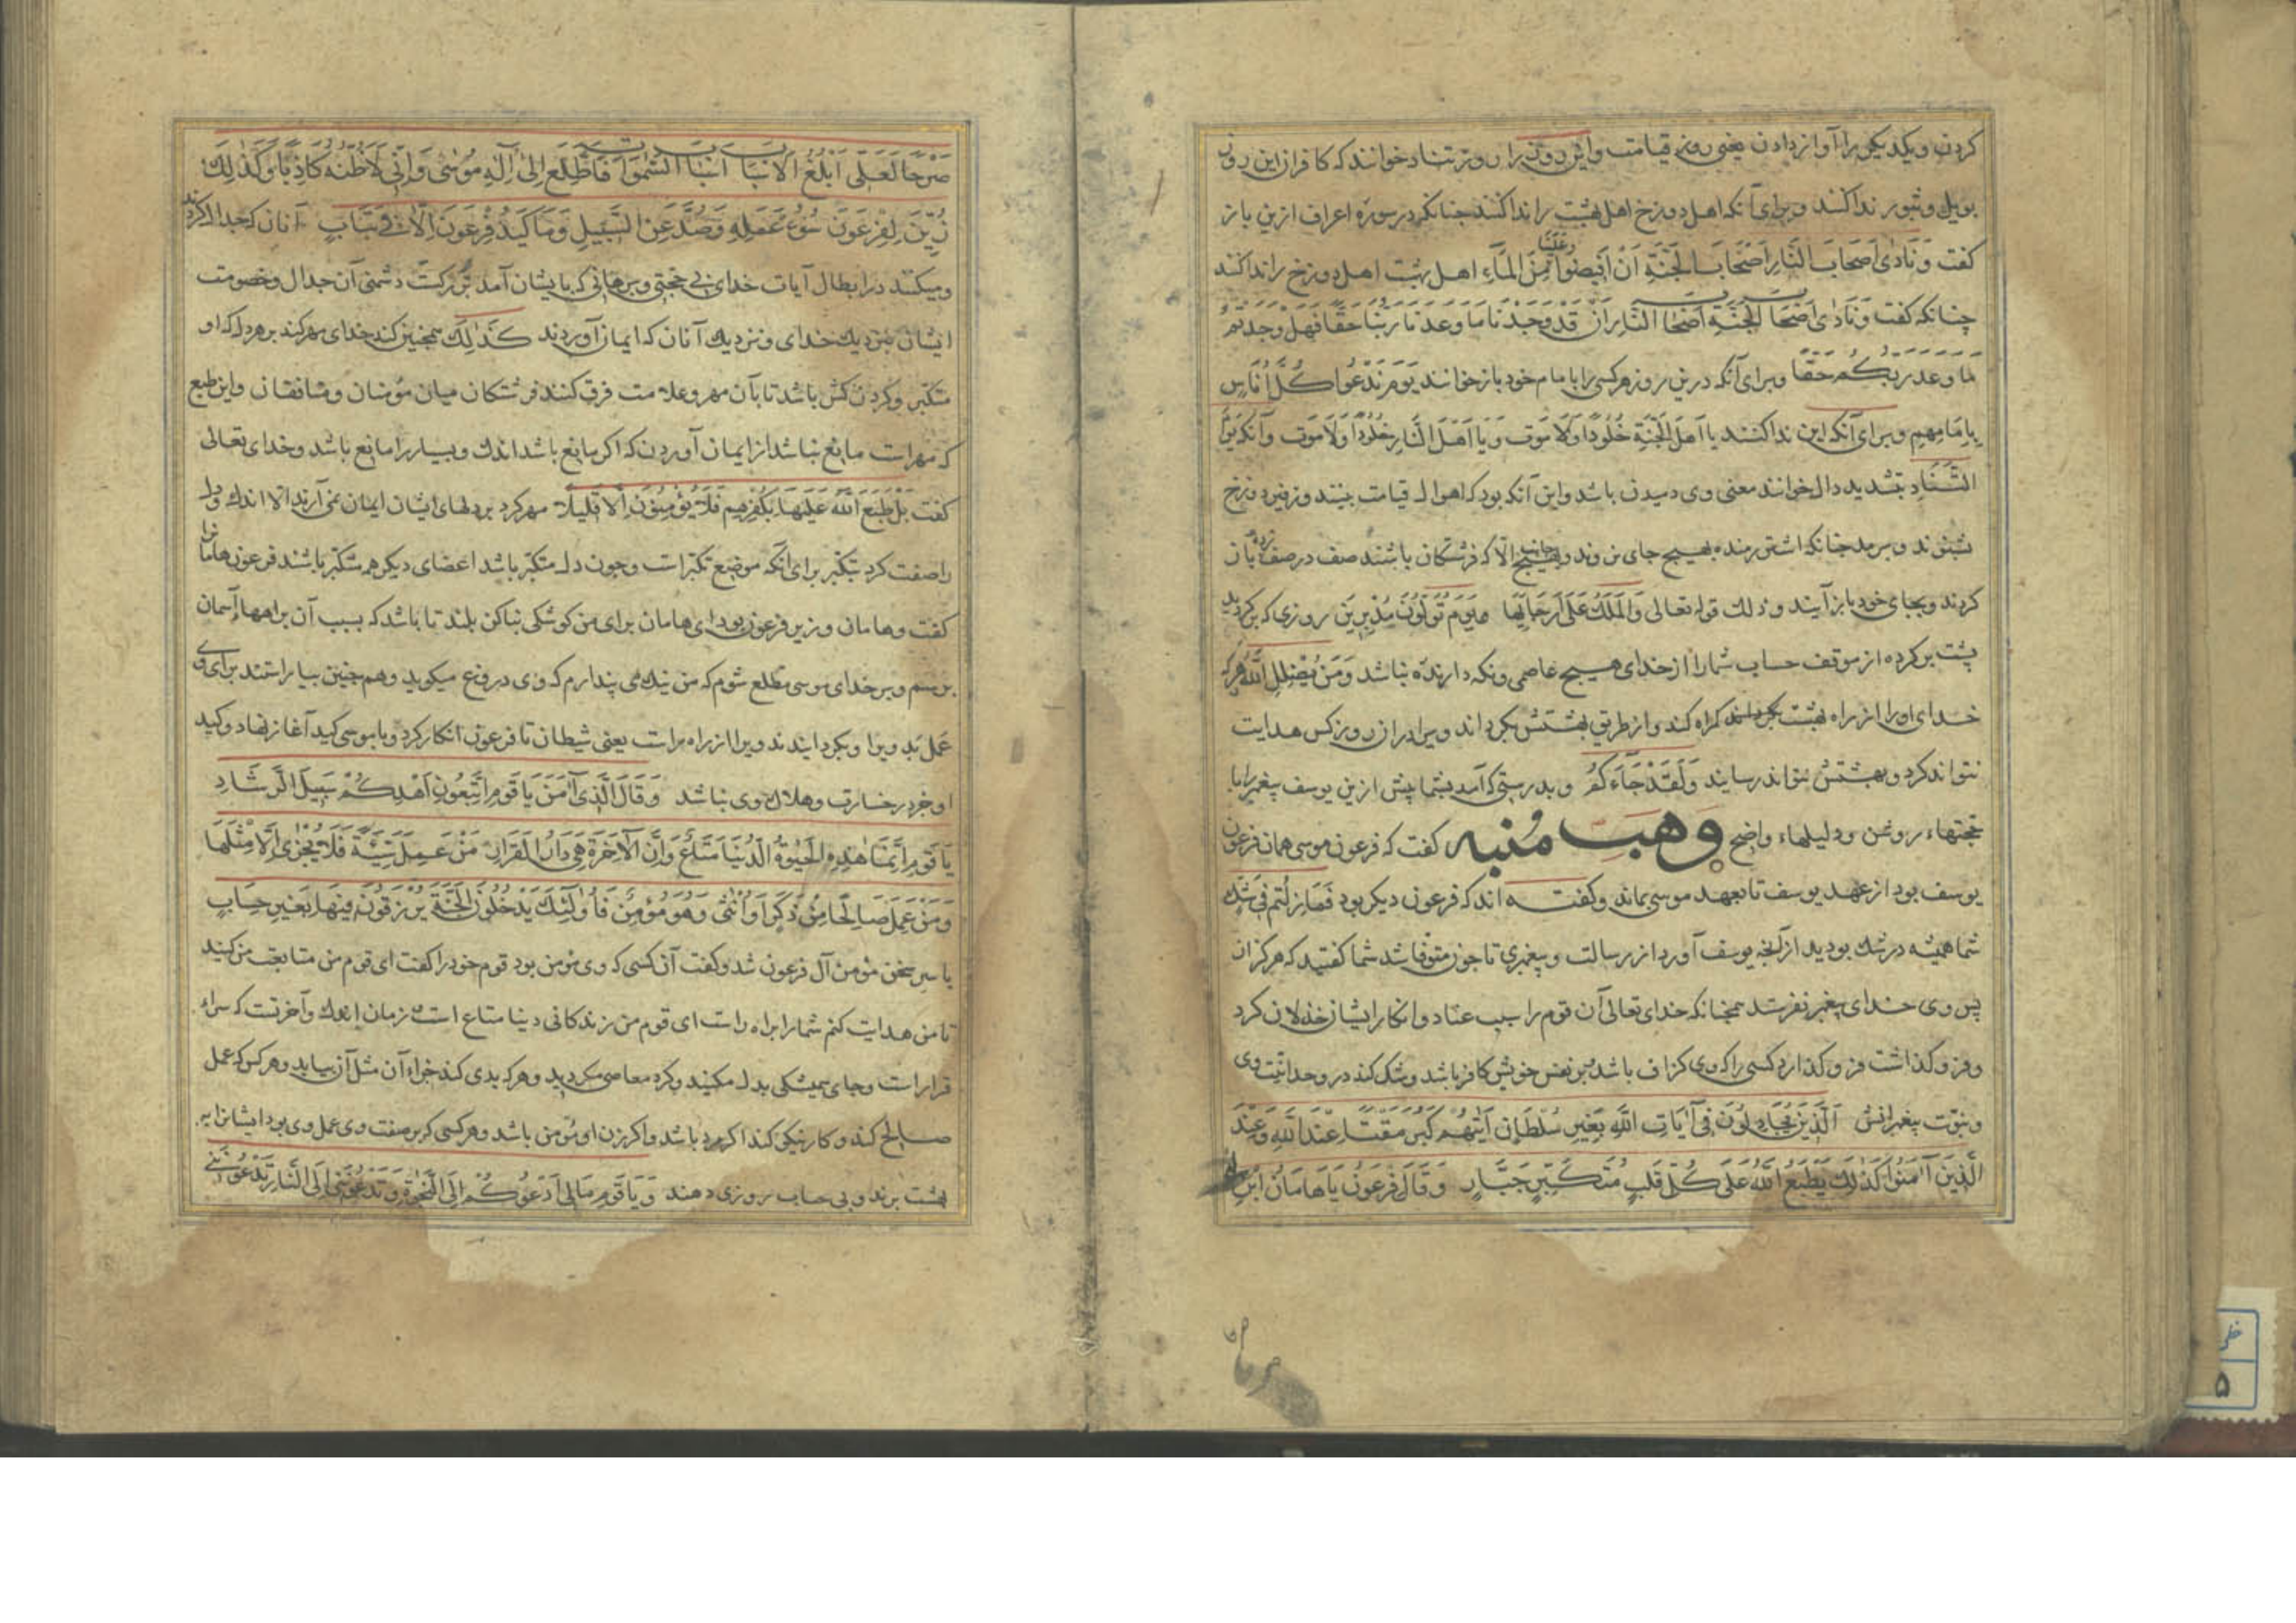 کردن و یکدیگر را آواز دادن یعنی روز قیامت و این روز را روز تناد خوانند که کافران این روز
بویل و ثبور ندا کنند و برای آنکه اهل دوزخ اهل بهشت را ندا کنند جنانکه در سورة اعراف ازین باز
کفت وَنَادٰی اَصحَابَ النَّارِ اَصْحَابَ الْجَنَّةِ اَنْ اَفِیضُوا عَلَیْنَا مِنَ المَاءِ اهل بهشت اهل دوزخ را ندا کنند
چنانکه کفت وَنَادٰی اَصْحَابُ الْجَنَّةِ اَصْحَابَ النَّارِ اَنْ قَدْ وَجَدْنَا مَا وَعَدَنَا رَبُّنَا حَقًّا فَهَلْ وَجَدْتُمْ
مَا وَعَدَ رَبُّكُمْ حَقًّا و برای آنکه درین روز هر کسی را بامام خود باز خوانند یَوْمَ نَدْعُوا كُلَّ اُنَاسٍ
بِاِمَامِهِمْ و برای آنکه این ندا کنند یا اَهلَ الْجَنَّةِ خُلُودًا وَلَا مَوت وَیَا اَهْلَ النَّارِ خُلُودًا وَلَا مَوت و آنکه یَوْمَ
التَّنَادِ بتشدید دال خوانند معنی وی دمیدن باشد و این آنکه بود که اهوال قیامت بینند و زفیر دوزخ
شنوند و برمد جنانکه اشتر رمنده بهیچ جای نروند و بهیچ جانب الا که فرشتکان باشند صف در صف زده باز
کردند و بجای خود باز آیند و ذلك قوله تعالی وَالْمَلَكُ عَلَی اَرْجَائِهَا یَوْمَ تُوَلُّونَ مُدْبِرِینَ روزی که برکردید
پشت بر کرده از موقف حساب شما را از خدای هیچ عاصمی و نکه دارنده نباشد وَمَنْ یُضْلِلِ اللّٰهُ هر که
خدای او را از راه بهشت بکرداند کمراه کند و از طریق بهشتش بکرداند ویرا در ان روز کس هدایت
نتواند کرد و بهشتش نتواند رسانید وَلَقَدْ جَاءَكُمْ و بدرستی که آمد بشما پیش ازین یوسف پیغمبر با
حجتهاء روشن و دلیلهاء واضح وهب منبه کفت که فرعون موسی همان فرعون
یوسف بود از عهد یوسف تا بعهد موسی بماند و کفته اند که فرعون دیکر بود فَمَا زِلْتُمْ فِی شَكٍّ
شما همیشه در شك بودید از آنچه یوسف آورد از رسالت و پیغمبری تا جون متوفا شد شما کفتید که هرکز از
پس وی خدای پیغمبر نفرستد همجنانکه خدای تعالی آن قوم را بسبب عناد و انکار ایشان خذلان کرد
و فرو کذاشت فرو کذارد کسی را که وی کزاف باشد بر نفس خویش کافر باشد و شك کند در وحدانیت وی
و نبوّت پیغمبرانش اَلَّذِینَ یُجَادِلُونَ فِی اٰیَاتِ اللّٰهِ بِغَیْرِ سُلْطَانٍ اَتٰیهُمْ كَبُرَ مَقْتًا عِنْدَ اللّٰهِ وَعِنْدَ
الَّذِینَ اٰمَنُوا كَذٰلِكَ یَطْبَعُ اللّٰهُ عَلَی كُلِّ قَلْبِ مُتَكَبِّرٍ جَبَّارٍ وَقَالَ فِرْعَوْنُ یَا هَامَانُ ابْنِ لِی
صَرْحًا لَعَلّی اَبْلُغُ الاَسْبَابَ اَسْبَابَ السَّمٰوَاتِ فَاَطَّلِعَ اِلٰی اِلٰهِ مُوسٰی وَاِنّی لَاَظُنُّهُ كَاذِبًا وَكَذٰلِكَ
زُیِّنَ لِفِرْعَوْنَ سُوءُ عَمَلِهِ وَصُدَّ عَنِ السَّبِیلِ وَمَا كَیْدُ فِرْعَوْنَ اِلَّا فِی تَبَابٍ آنان که جدال کردند
و میکنند در ابطال آیات خدای بی حجتی و برهانی که بایشان آمد بزرکست دشمنی آن جدال و خصومت
ایشان بنزدیك خدای و نزدیك آنان که ایمان آوردند كَذٰلِكَ همچنین کند خدای مهر کند بر هر دل که او
متکبّر و کردن کش باشد تا بآن مهر و علامت فرق کنند فرشتکان میان مؤمنان و منافقان و این طبع
که مهراست مانع نباشد از ایمان آوردن که اکر مانع باشد اندك و بسیار را مانع باشد و خدای تعالی
کفت بَلْ طَبَعَ اللّٰهُ عَلَیْهَا بِكُفْرِهِمْ فَلَا یُؤْمِنُونَ اِلَّا قَلِیلًا مهر کرد بر دلهای ایشان ایمان نمی آرند الا اندك و دل
را صفت کرد بتکبّر برای آنکه موضع تکبّر است و جون دل متکبّر باشد اعضای دیکر هم متکبّر باشند فرعون هامان را
کفت و هامان وزیر فرعون بود ای هامان برای من کوشکی بنا کن بلند تا باشد که بسبب آن براهها آسمان
برسم و بر خدای موسی مطلع شوم که من نیك می پندارم که وی دروغ میکوید و همچنین بیاراستند برای وی
عمل بد ویرا و بکردانیدند ویرا از راه راست یعنی شیطان تا فرعون انکار کرد و با موسی کید آغاز نهاد و کید
او جز در خسارت و هلاك وی نباشد وَقَالَ الَّذِی اٰمَنَ یَا قَوْمِ اتَّبِعُونِ اَهْدِكُمْ سَبِیلَ الرَّشَادِ
یَا قَوْمِ اِنَّمَا هٰذِهِ الْحَیٰوةُ الدُّنْیَا مَتَاعٌ وَاِنَّ الْاٰخِرَةَ هِیَ دَارُ الْقَرَارِ مَنْ عَمِلَ سَیِّئَةً فَلَا یُجْزٰی اِلَّا مِثْلَهَا
وَمَنْ عَمِلَ صَالِحًا مِنْ ذَكَرٍ اَوْ اُنْثٰی وَهُوَ مُؤْمِنٌ فَاُولٰئِكَ یَدْخُلُونَ الْجَنَّةَ یُرْزَقُونَ فِیهَا بِغَیْرِ حِسَابٍ
با سر سخن مؤمن آل فرعون شد و کفت آن کسی که وی مؤمن بود قوم خود را کفت ای قوم من متابعت من کنید
تا من هدایت کنم شما را براه راست ای قوم من زندکانی دنیا متاع است زمان اندك و آخرتست که سراء
قرار است و جای همیشکی بدل مکنید و کرد معاصی مکردید و هر که بدی کند جزاء آن مثل آن بیابد و هر کس که عمل
صالح کند و کار نیکی کند اکر مرد باشد و اکر زن او مؤمن باشد و هر کسی که بر صفت وی عمل وی بود ایشانرا به
بهشت برند و بی حساب روزی دهند وَیَا قَوْمِ مَا لِی اَدْعُوكُمْ اِلَی النَّجٰوةِ وَتَدْعُونَنِی اِلَی النَّارِ تَدْعُونَنِی